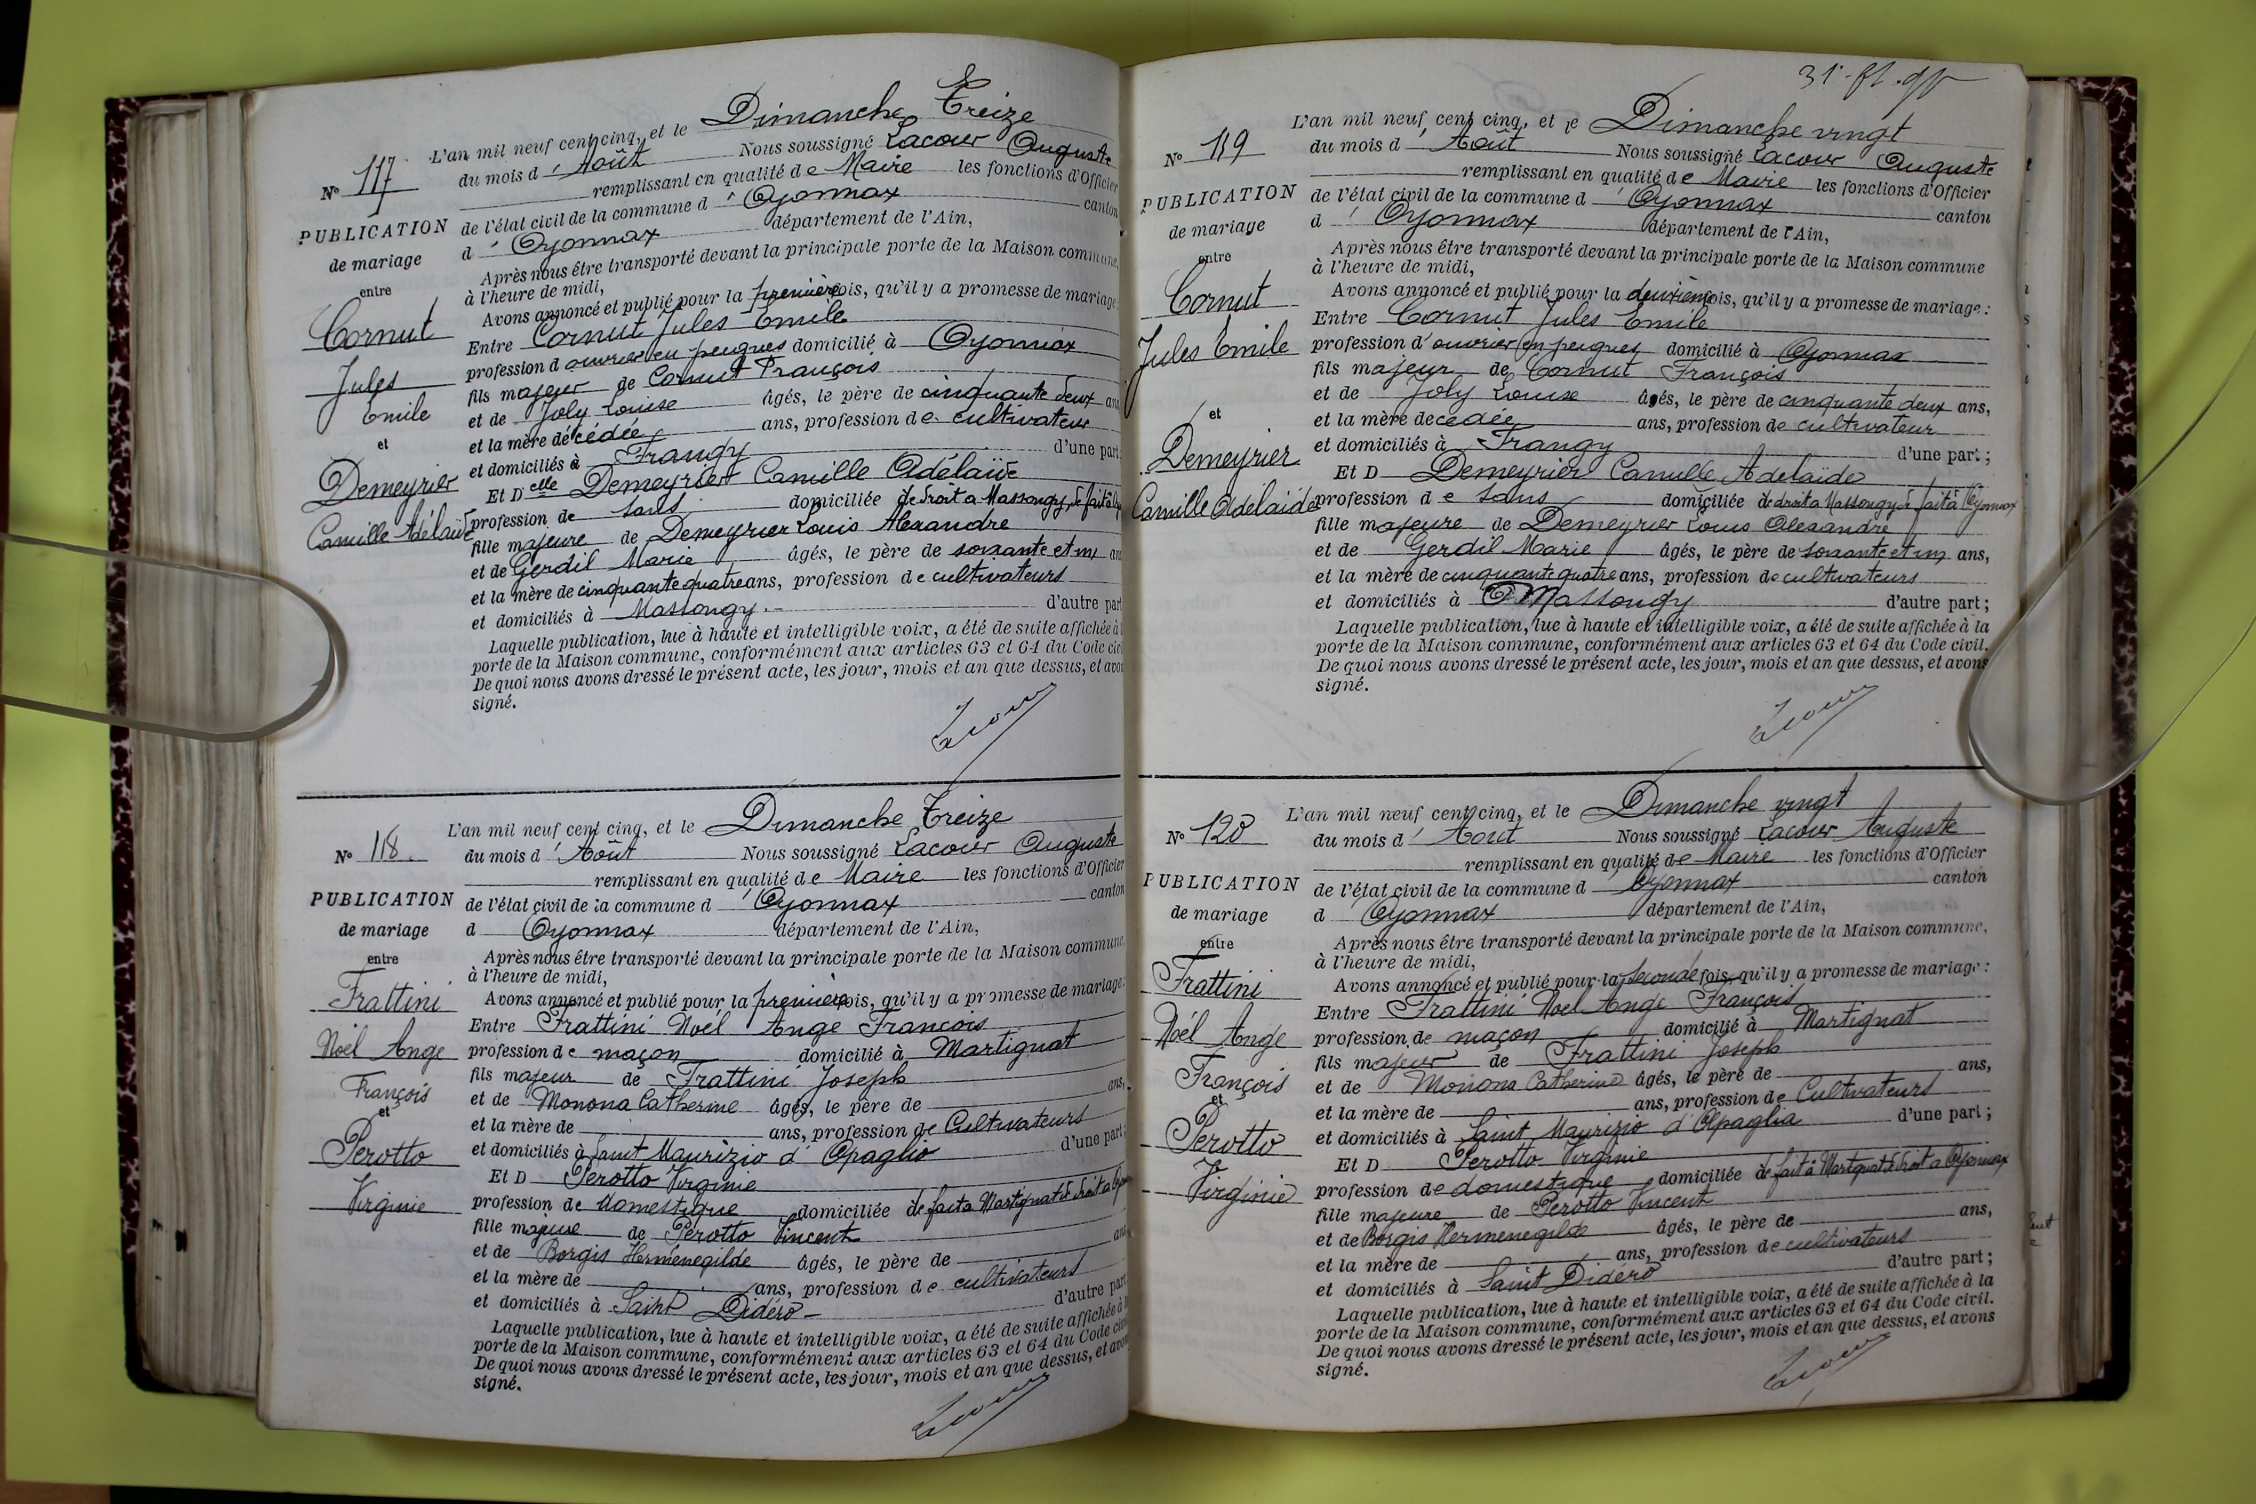 L'an mil neuf cent cinq, et le Dimanche Treize
N° 117
du mois d'Août Nous soussigné Lacour Auguste
remplissant en qualité de Maire les fonctions d'Officier
PUBLICATION
de l'état civil de la commune d'Oyonnax canton
de mariage
d'Oyonnax département de l'Ain,
Après nous être transporté devant la principale porte de la Maison commune,
entre
à l'heure de midi,
Avons annoncé et publié pour la première fois, qu'il y a promesse de mariage:
Cornut
Entre Cornut Jules Emile
profession d'ouvrier en peignes domicilié à Oyonnax
Jules
fils majeur de Cornut François
Emile
et de Joly Louise âgés, le père de cinquante deux ans
et
et la mère décédée ans, profession de cultivateur
et domiciliés à Frangy d'une part;
Demeyrier
Et Delle Demeyrier Camille Adélaïde
profession de sans domiciliée de droit à Massongy, de fait à
Camille Adélaïde
fille majeure de Demeyrier Louis Alexandre
et de Gerdil Marie âgés, le père de soixante et un ans
et la mère de cinquante quatre ans, profession de cultivateurs
et domiciliés à Massongy d'autre part
Laquelle publication, lue à haute et intelligible voix, a été de suite affichée à
porte de la Maison commune, conformément aux articles 63 et 64 du Code civil
De quoi nous avons dressé le présent acte, les jour, mois et an que dessus, et avons
signé.
Lacour
L'an mil neuf cent cinq, et le Dimanche Treize
N° 118
du mois d'Août Nous soussigné Lacour Auguste
remplissant en qualité de Maire les fonctions d'Officier
PUBLICATION
de l'état civil de la commune d'Oyonnax canton
de mariage
d Oyonnax département de l'Ain,
entre
Après nous être transporté devant la principale porte de la Maison commune,
à l'heure de midi,
Frattini
Avons annoncé et publié pour la première fois, qu'il y a promesse de mariage:
Entre Frattini Noël Ange François
Noël Ange
profession de maçon domicilié à Martignat
fils majeur de Frattini Joseph
François
et de Monona Catherine âgés, le père de ans,
et
et la mère de ans, profession de Cultivateurs
Perotto
et domiciliés à Saint Maurizio d'Opaglio d'une part;
Et D Perotto Virginie
Virginie
profession de domestique domiciliée de fait à Martignat de droit à
fille majeure de Perotto Vincent
et de Borgis Herménegilde âgés, le père de ans
et la mère de ans, profession de cultivateurs
et domiciliés à Saint Didéro d'autre part
Laquelle publication, lue à haute et intelligible voix, a été de suite affichée à
porte de la Maison commune, conformément aux articles 63 et 64 du Code civil
De quoi nous avons dressé le présent acte, les jour, mois et an que dessus, et avons
signé.
Lacour
31
L'an mil neuf cent cinq, et le Dimanche vingt
N° 119
du mois d'Août Nous soussigné Lacour Auguste
remplissant en qualité de Maire les fonctions d'Officier
PUBLICATION
de l'état civil de la commune d'Oyonnax canton
de mariage
d'Oyonnax département de l'Ain,
entre
Après nous être transporté devant la principale porte de la Maison commune
à l'heure de midi,
Cornut
Avons annoncé et publié pour la deuxième fois, qu'il y a promesse de mariage:
Entre Cornut Jules Emile
Jules Emile
profession d'ouvrier en peignes domicilié à Oyonnax
fils majeur de Cornut François
et de Joly Louise âgés, le père de cinquante deux ans,
et
et la mère decédée ans, profession de cultivateur
et domiciliés à Frangy d'une part;
Demeyrier
Et D Demeyrier Camille Adelaïde
Camille Adélaïde
profession de sans domiciliée de droit à Massongy de fait à Oyonnax
fille majeure de Demeyrier Louis Alexandre
et de Gerdil Marie âgés, le père de soixante et un ans,
et la mère de cinquante quatre ans, profession de cultivateurs
et domiciliés à Massongy d'autre part;
Laquelle publication, lue à haute et intelligible voix, a été de suite affichée à la
porte de la Maison commune, conformément aux articles 63 et 64 du Code civil.
De quoi nous avons dressé le présent acte, les jour, mois et an que dessus, et avons
signé.
Lacour
L'an mil neuf cent cinq, et le Dimanche vingt
N° 120
du mois d'Août Nous soussigné Lacour Auguste
remplissant en qualité de Maire les fonctions d'Officier
PUBLICATION
de l'état civil de la commune d Oyonnax canton
de mariage
d'Oyonnax département de l'Ain,
entre
Après nous être transporté devant la principale porte de la Maison commune,
à l'heure de midi,
Frattini
Avons annoncé et publié pour la seconde fois, qu'il y a promesse de mariage:
Entre Frattini Noel Ange François
Noël Ange
profession de maçon domicilié à Martignat
fils majeur de Frattini Joseph
François
et de Monona Catherine âgés, le père de ans,
et
et la mère de ans, profession de Cultivateurs
Perotto
et domiciliés à Saint Maurizio d'Opaglia d'une part;
Et D Perotto Virginie
Virginie
profession de domestique domiciliée de fait à Martignat de droit à Oyonnax
fille majeure de Perotto Vincent
et de Borgis Hermenegilde âgés, le père de ans,
et la mère de ans, profession de cultivateurs
et domiciliés à Saint Didéro d'autre part;
Laquelle publication, lue à haute et intelligible voix, a été de suite affichée à la
porte de la Maison commune, conformément aux articles 63 et 64 du Code civil.
De quoi nous avons dressé le présent acte, les jour, mois et an que dessus, et avons
signé.
Lacour